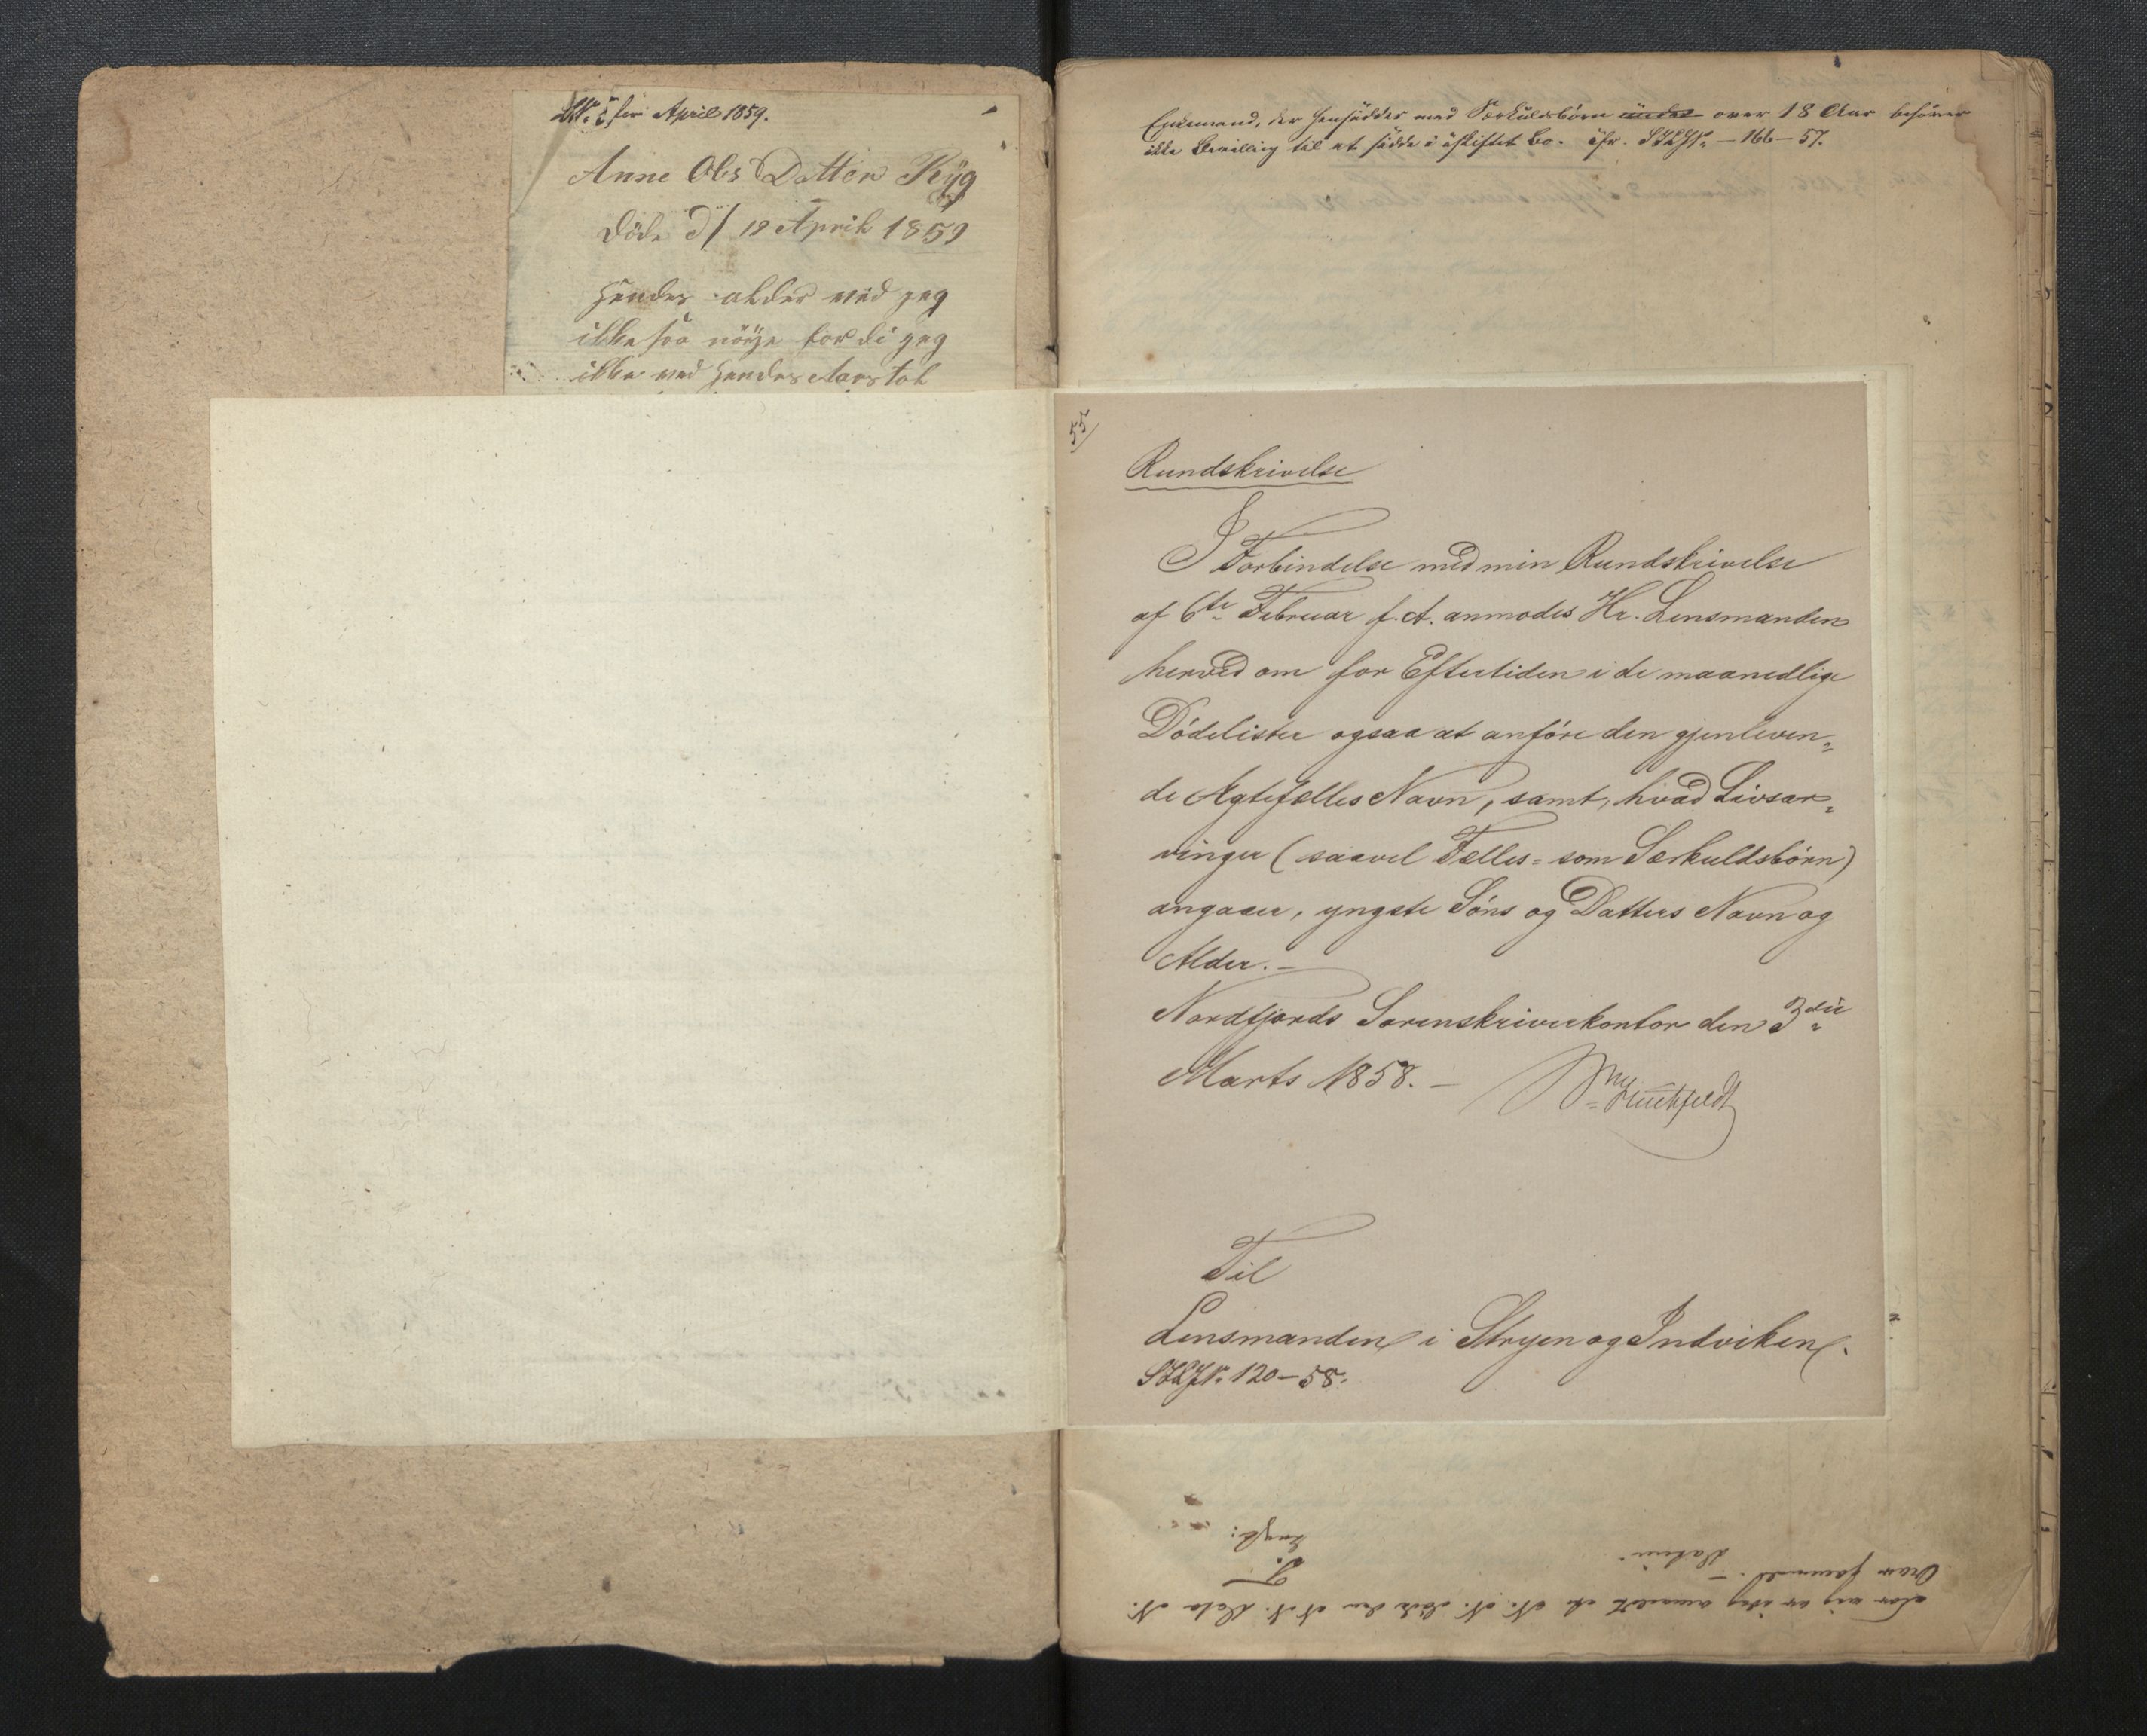 No. 5 for April 1859.
Anne Ols Datter Ryg
döde d/ 19 April 1859
hendes alder ved jeg
ikke saa nöye fordi jeg
ikke ved hendes Aarstal
Enkemand, der hensidder med Særkuldsbörn under over 18 Aar behöver
ikke Bevilling til at sidde i uskiftet Bo. cfr. 166-57.
55/
Rundskrivelse
I Forbindelse med min Rundskrivelse
af 6te Februar f. A. anmodes Hr. Lensmanden
herved om for Eftertiden i de maanedlige
Dödelister ogsaa at anföre den gjenleven=
de Ægtefælles Navn, samt, hvad Livsar=
vinger (saavel Fælles= som Særkuldsbörn)
angaaer, yngste Söns og Datters Navn og
Alder.-
Nordfjords Sorenskriverkontor den 3die
Marts 1858.-
Til
Lensmanden i Stryen og Indviken.
120-58.
For mig er idag anmeldt at N. N. döde den